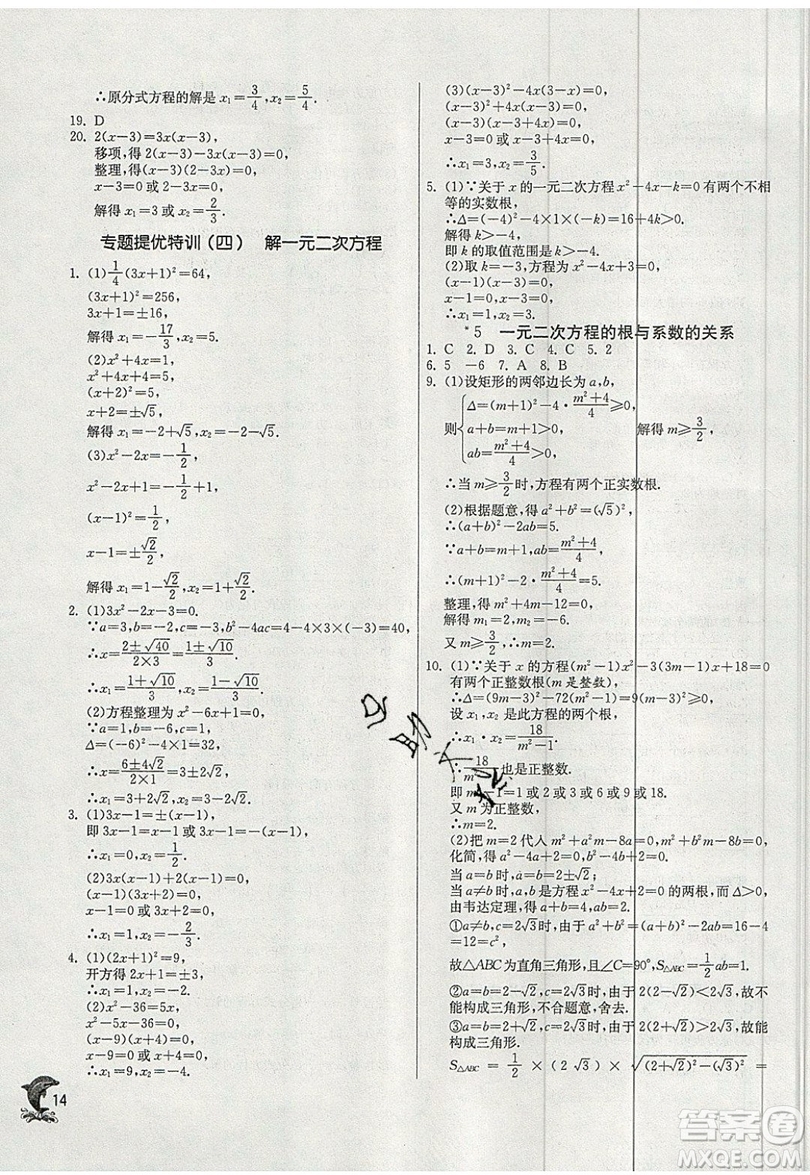 ∴原分式方程的解是 x₁=3/4, x₂=5/4.
19. D
20. 2(x-3)=3x(x-3),
移项,得 2(x-3)-3x(x-3)=0,
整理,得(x-3)(2-3x)=0,
x-3=0 或 2-3x=0,
解得 x₁=3 或 x₂=2/3.
专题提优特训(四) 解一元二次方程
1. (1)1/4(3x+1)²=64,
(3x+1)²=256,
3x+1=±16,
解得 x₁=-17/3, x₂=5.
(2)x²+4x=1,
x²+4x+4=1+4,
(x+2)²=5,
x+2=±√5,
解得 x₁=-2+√5, x₂=-2-√5.
(3)x²-2x=-1/2,
x²-2x+1=-1/2+1,
(x-1)²=1/2,
x-1=±√2/2,
解得 x₁=1-√2/2, x₂=1+√2/2.
2. (1)3x²-2x-3=0.
∵a=3,b=-2,c=-3,b²-4ac=4-4×3×(-3)=40,
∴x=(2±√40)/(2×3)=(1±√10)/3,
∴x₁=(1+√10)/3, x₂=(1-√10)/3.
(2)方程整理为 x²-6x+1=0,
∵a=1,b=-6,c=1,
Δ=(-6)²-4×1=4×8,
∴x=(6±4√2)/(2×1)=3±2√2,
∴x₁=3+2√2, x₂=3-2√2.
3. (1)3x-1=±(x-1),
即 3x-1=x-1 或 3x-1=-(x-1),
∴x₁=0, x₂=1/2.
(2)3x(x-1)+2(x-1)=0,
(x-1)(3x+2)=0,
x-1=0 或 3x+2=0,
∴x₁=1, x₂=-2/3.
4. (1)(2x+1)²=9,
开方得 2x+1=±3,
∴x₁=1, x₂=-2.
(2)x²-36=5x,
x²-5x-36=0,
(x-9)(x+4)=0,
x-9=0 或 x+4=0,
∴x₁=9, x₂=-4.
14
(3)(x-3)²-4x(3-x)=0,
(x-3)²+4x(x-3)=0,
(x-3)(x-3+4x)=0,
x-3=0 或 x-3+4x=0,
∴x₁=3, x₂=3/5.
5. (1)∵关于 x 的一元二次方程 x²-4x-k=0 有两个不相
等的实数根,
∴Δ=(-4)²-4×1×(-k)=16+4k>0,
解得 k>-4,
即 k 的取值范围是 k>-4.
(2)取 k=-3,方程为 x²-4x+3=0,
(x-1)(x-3)=0,
x-1=0,x-3=0,
∴x₁=1, x₂=3.
*5 一元二次方程的根与系数的关系
1. C 2. D 3. C 4. C 5. 2
6. 5 -6 7. A 8. B
9. (1)设矩形的两邻边长为 a,b,
则{Δ=(m+1)²-4·(m²+4)/4≥0,
a+b=m+1>0, 解得 m≥3/2,
ab=(m²+4)/4>0,
∴当 m≥3/2时,方程有两个正实数根.
(2)根据题意,得 a²+b²=(√5)²,
∴(a+b)²-2ab=5.
∵a+b=m+1,ab=(m²+4)/4,
∴(m+1)²-2×(m²+4)/4=5.
解得 m₁=2,m₂=-6.
又 m≥3/2,∴m=2.
10. (1)∵关于 x 的方程(m²-1)x²-3(3m-1)x+18=0
有两个正整数根(m 是整数),
∴Δ=(9m-3)²-72(m²-1)=9(m-3)²≥0,
设 x₁,x₂ 是此方程的两个根,
∴x₁·x₂=18/(m²-1).
18 也是正整数.
即 m²-1=1 或 2 或 3 或 6 或 9 或 18.
又 m 为正整数,
∴m=2.
(2)把 m=2 代入 m²+a²m-8a=0,
化简,得 a²-4a+2=0, b²-4b+2=0.
当 a=b 时,a=b=2±√2.
当 a≠b 时,a,b 是方程 x²-4x+2=0 的两根,而 Δ>0,
由韦达定理得 a+b=4>0,ab=2>0,则 a>0,b>0.
①a≠b,c=2√3时,由于 a²+b²=(a+b)²-2ab=16-4
=12=c²,
故△ABC为直角三角形,且∠C=90°,S△ABC=1/2ab=1.
②a=b=2-√2,c=2√3时,由于 2(2-√2)<2√3,故不
能构成三角形,不合题意,舍去.
③a=b=2+√2,c=2√3时,由于 2(2+√2)>2√3,故能
构成三角形.
S△ABC=1/2×(2√3)×√((2+√2)²-(√3)²)=
答案圈
MXQE.COM